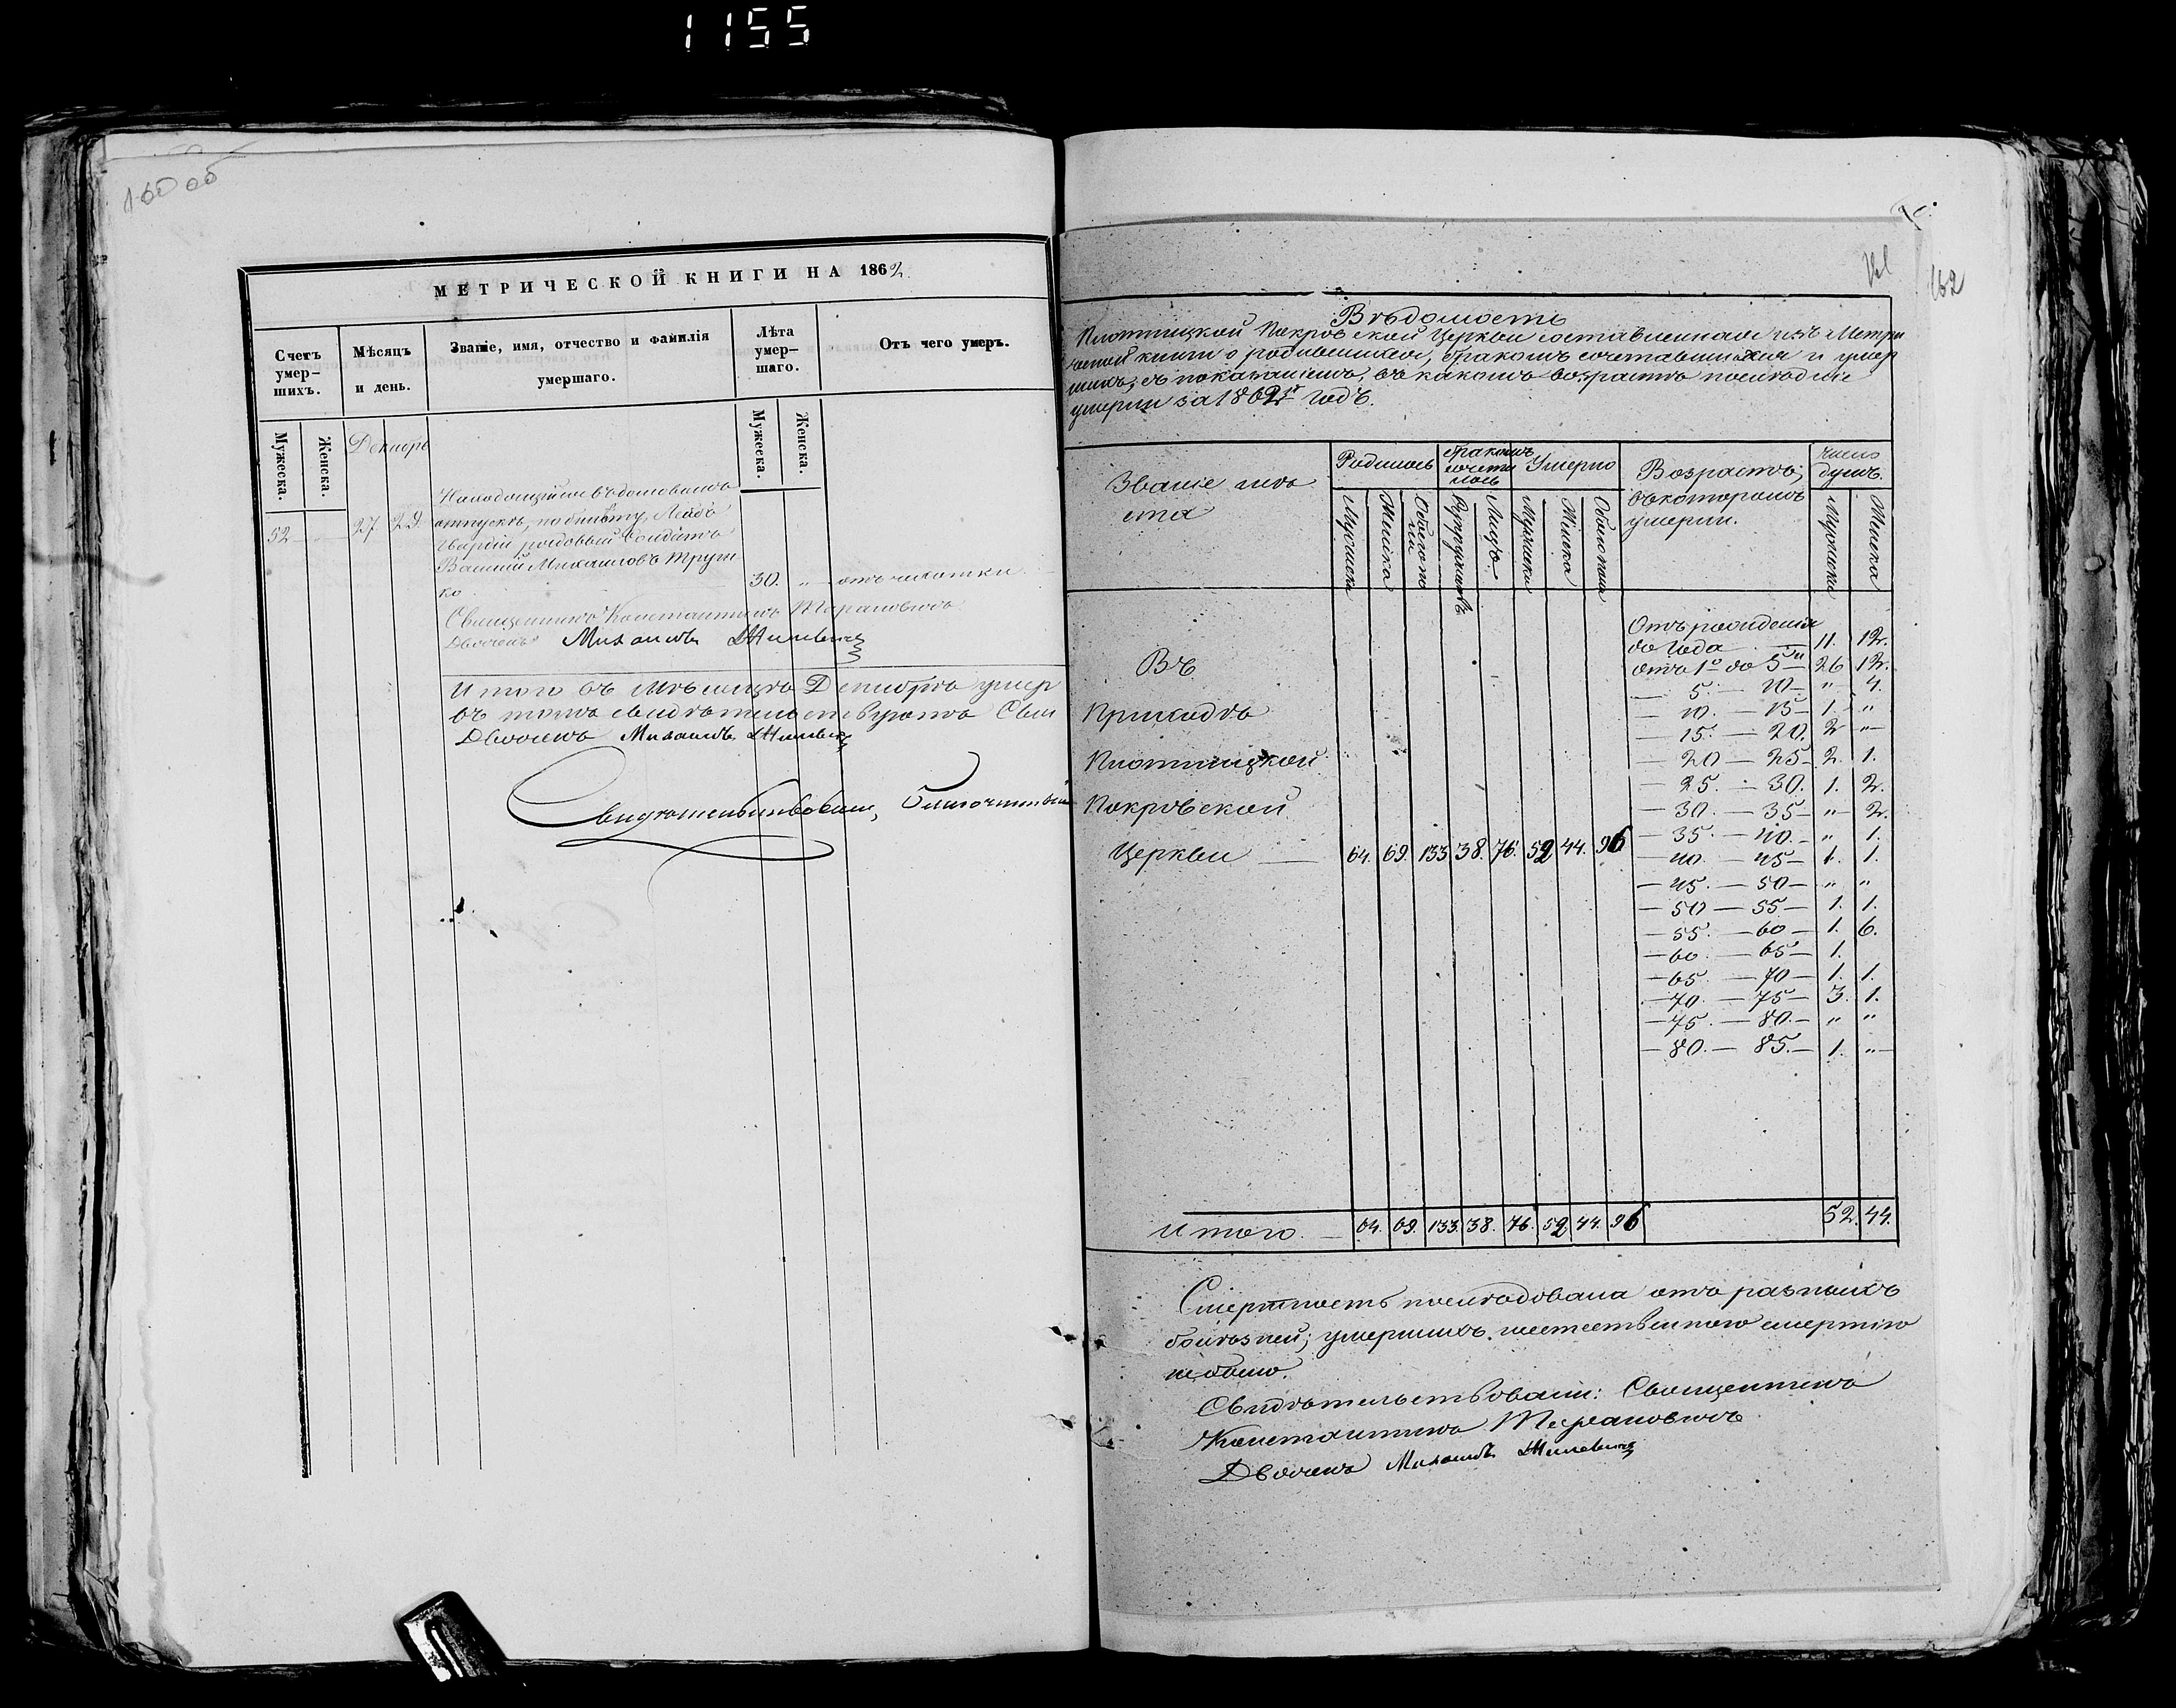 1155
160 об
МЕТРИЧЕСКОЙ КНИГИ НА 1862.
Счетъ умер-шихъ.
Мѣсяцъ и день.
Званіе, имя, отчество и фамилія умершаго.
Лѣта умер-шаго.
Отъ чего умеръ.
Мужеска.
Женска.
Мужеска.
Женска.
Декабрь
52 27 29
Находящійся въ домовомъ
отпускѣ, по билету, Лейбъ
Гвардіи рядовый Солдатъ
Василій Михаиловъ
30. „ отъ чахотки
Священникъ Константинъ Тарановичъ
Дьячекъ Михаилъ
Итого въ мѣсяцѣ Декабрѣ умер
въ томъ свидѣтельствуютъ Свя
Дьячекъ Михаилъ
Свидѣтельствовалъ, Благочинный
161
162
Вѣдомость
Плотницкой Покровской Церкви составленная изъ Метри
ческой книги о родившихся, бракомъ сочетавшихся и умер
шихъ, съ показаніемъ, въ какомъ возрастѣ послѣдніе
умерли за 1862й годъ.
Званіе мѣста
Родилось
бракомъ сочеталось
Умерло
Возрастъ, въ которомъ умерли.
Число душъ.
Мужеска
Женска
Обоего пола
Супружествъ
Лицъ
Мужеска
Женска
Обоего пола
Мужеска
Женска
Отъ рожденія
до года 11. 12.
отъ 1го до 5ти 26 12.
— 5. — 10 — „ 4.
— 10. — 15 — 1. „
— 15. — 20. 2 „
— 20 — 25 — 2. 1.
— 25. — 30. 1. 2.
— 30. — 35 — „ 2.
— 35. — 40. — „ 1.
— 40. — 45 — 1. 1.
— 45. — 50 — „ „
— 50 — 55 — 1. 1.
— 55. — 60 — 1. 6.
— 60. — 65 — 1.
— 65. — 70 — 1. 1.
— 70. — 75 — 3. 1.
— 75. — 80. — „ „
— 80. — 85. — 1. „
Въ
Приходѣ
Плотницкой
Покровской
Церкви — 64. 69. 133 38. 76. 52 44. 96
Итого. — 64. 69. 133. 38. 76. 52 44. 96 52. 44.
Смертность послѣдовала отъ разныхъ
болѣзней; умершихъ неестественною смертію
не было.
Свидѣтельствовали: Священникъ
Константинъ Тарановичъ
Дьячекъ Михаилъ